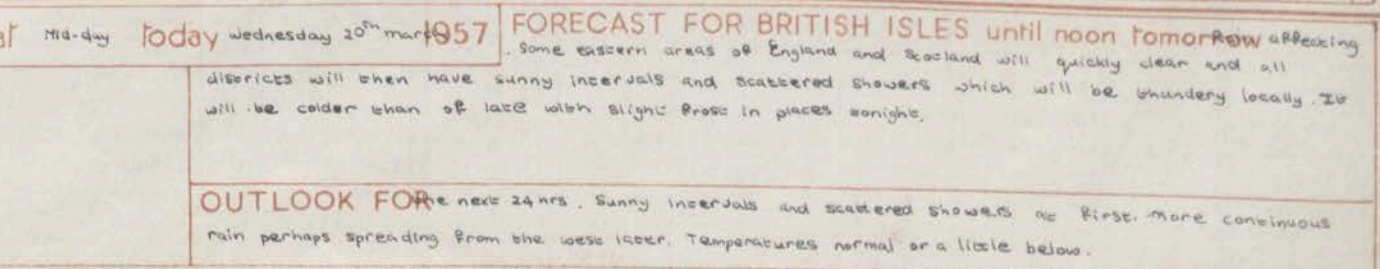 at Mid-day today wednesday 20th march 1957
FORECAST FOR BRITISH ISLES until noon tomorrow Rain affecting
Some eastern areas of England and Scotland will quickly clear and all
districts will then have sunny intervals and scattered showers which will be thundery locally. It
will be colder than of late with slight frost in places tonight.
OUTLOOK FOR the next 24 hrs. Sunny intervals and scattered showers at first. More continuous
rain perhaps spreading from the west later. Temperatures normal or a little below.